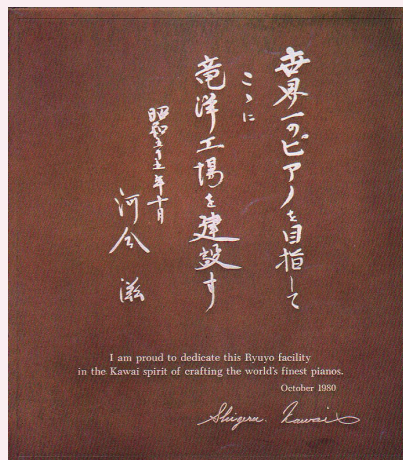 世界一のピアノを目指して
ここに
竜洋工場を建設す
昭和五十五年十月
河合 滋
I am proud to dedicate this Ryuyo facility
in the Kawai spirit of crafting the world's finest pianos.
October 1980
Shigeru Kawai